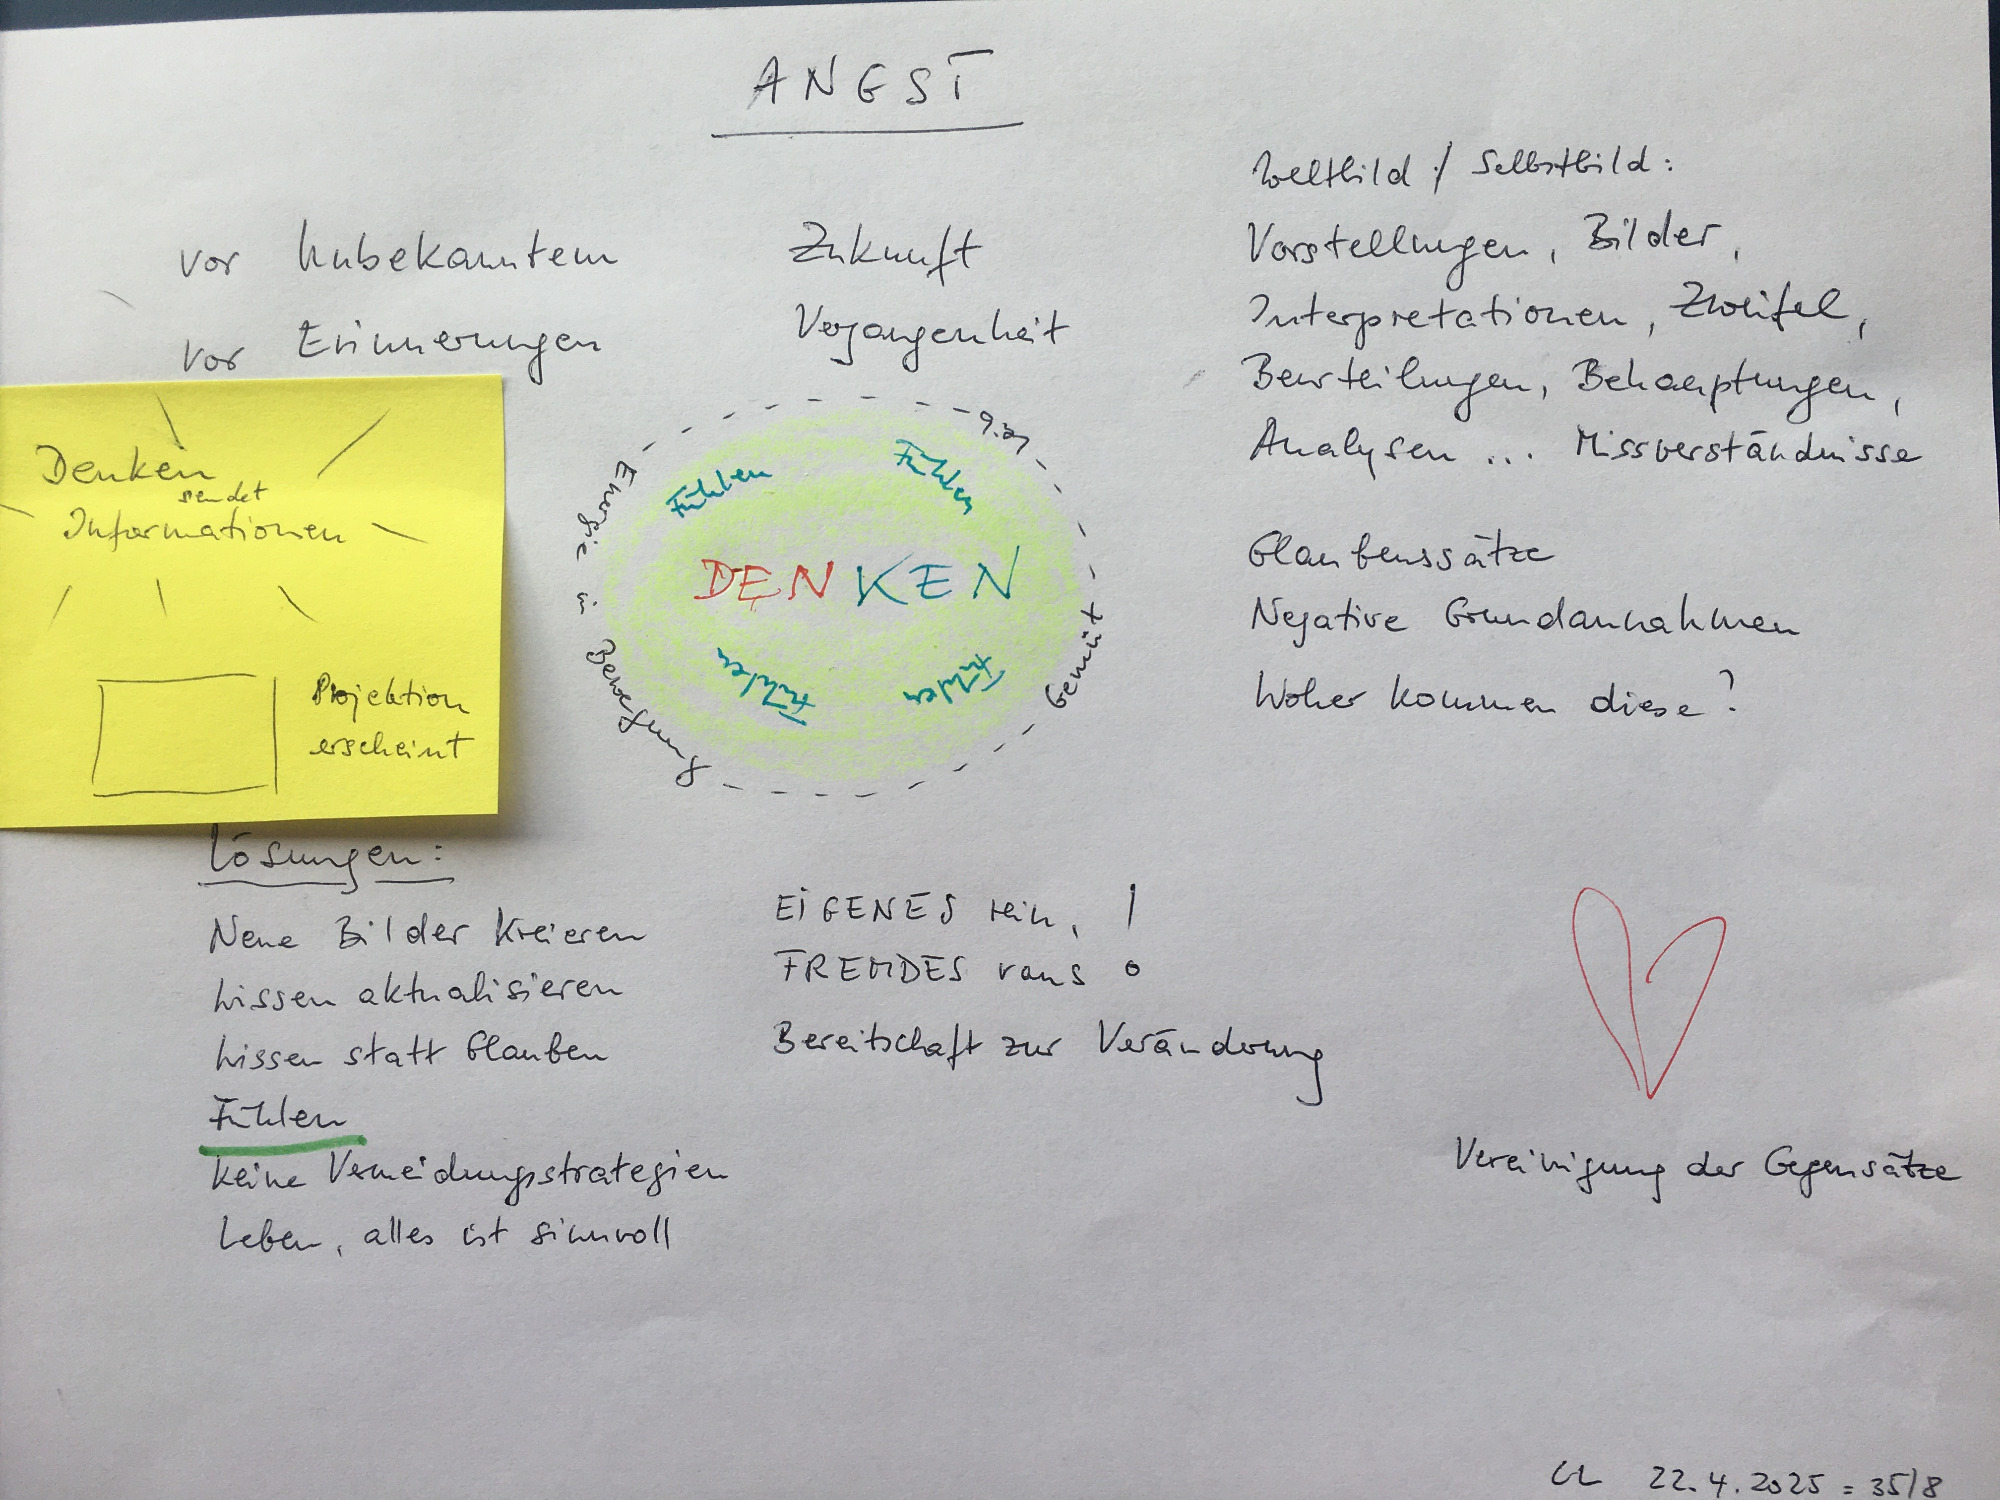 ANGST
vor Unbekanntem Zukunft
vor Erinnerungen Vergangenheit
Weltbild / Selbstbild:
Vorstellungen, Bilder,
Interpretationen, Zweifel,
Beurteilungen, Behauptungen,
Analysen ... Missverständnisse
Glaubenssätze
Negative Grundannahmen
Woher kommen diese?
Denken
sendet
Informationen
Projektion
erscheint
Energie in Bewegung
Gemüt
Fühlen Fühlen
DENKEN
Fühlen Fühlen
Lösungen:
Neue Bilder kreieren
Wissen aktualisieren
Wissen statt Glauben
Fühlen
keine Vermeidungsstrategien
Leben, alles ist sinnvoll
EIGENES rein, !
FREMDES raus
Bereitschaft zur Veränderung
Vereinigung der Gegensätze
CL 22.4.2025 = 35/8